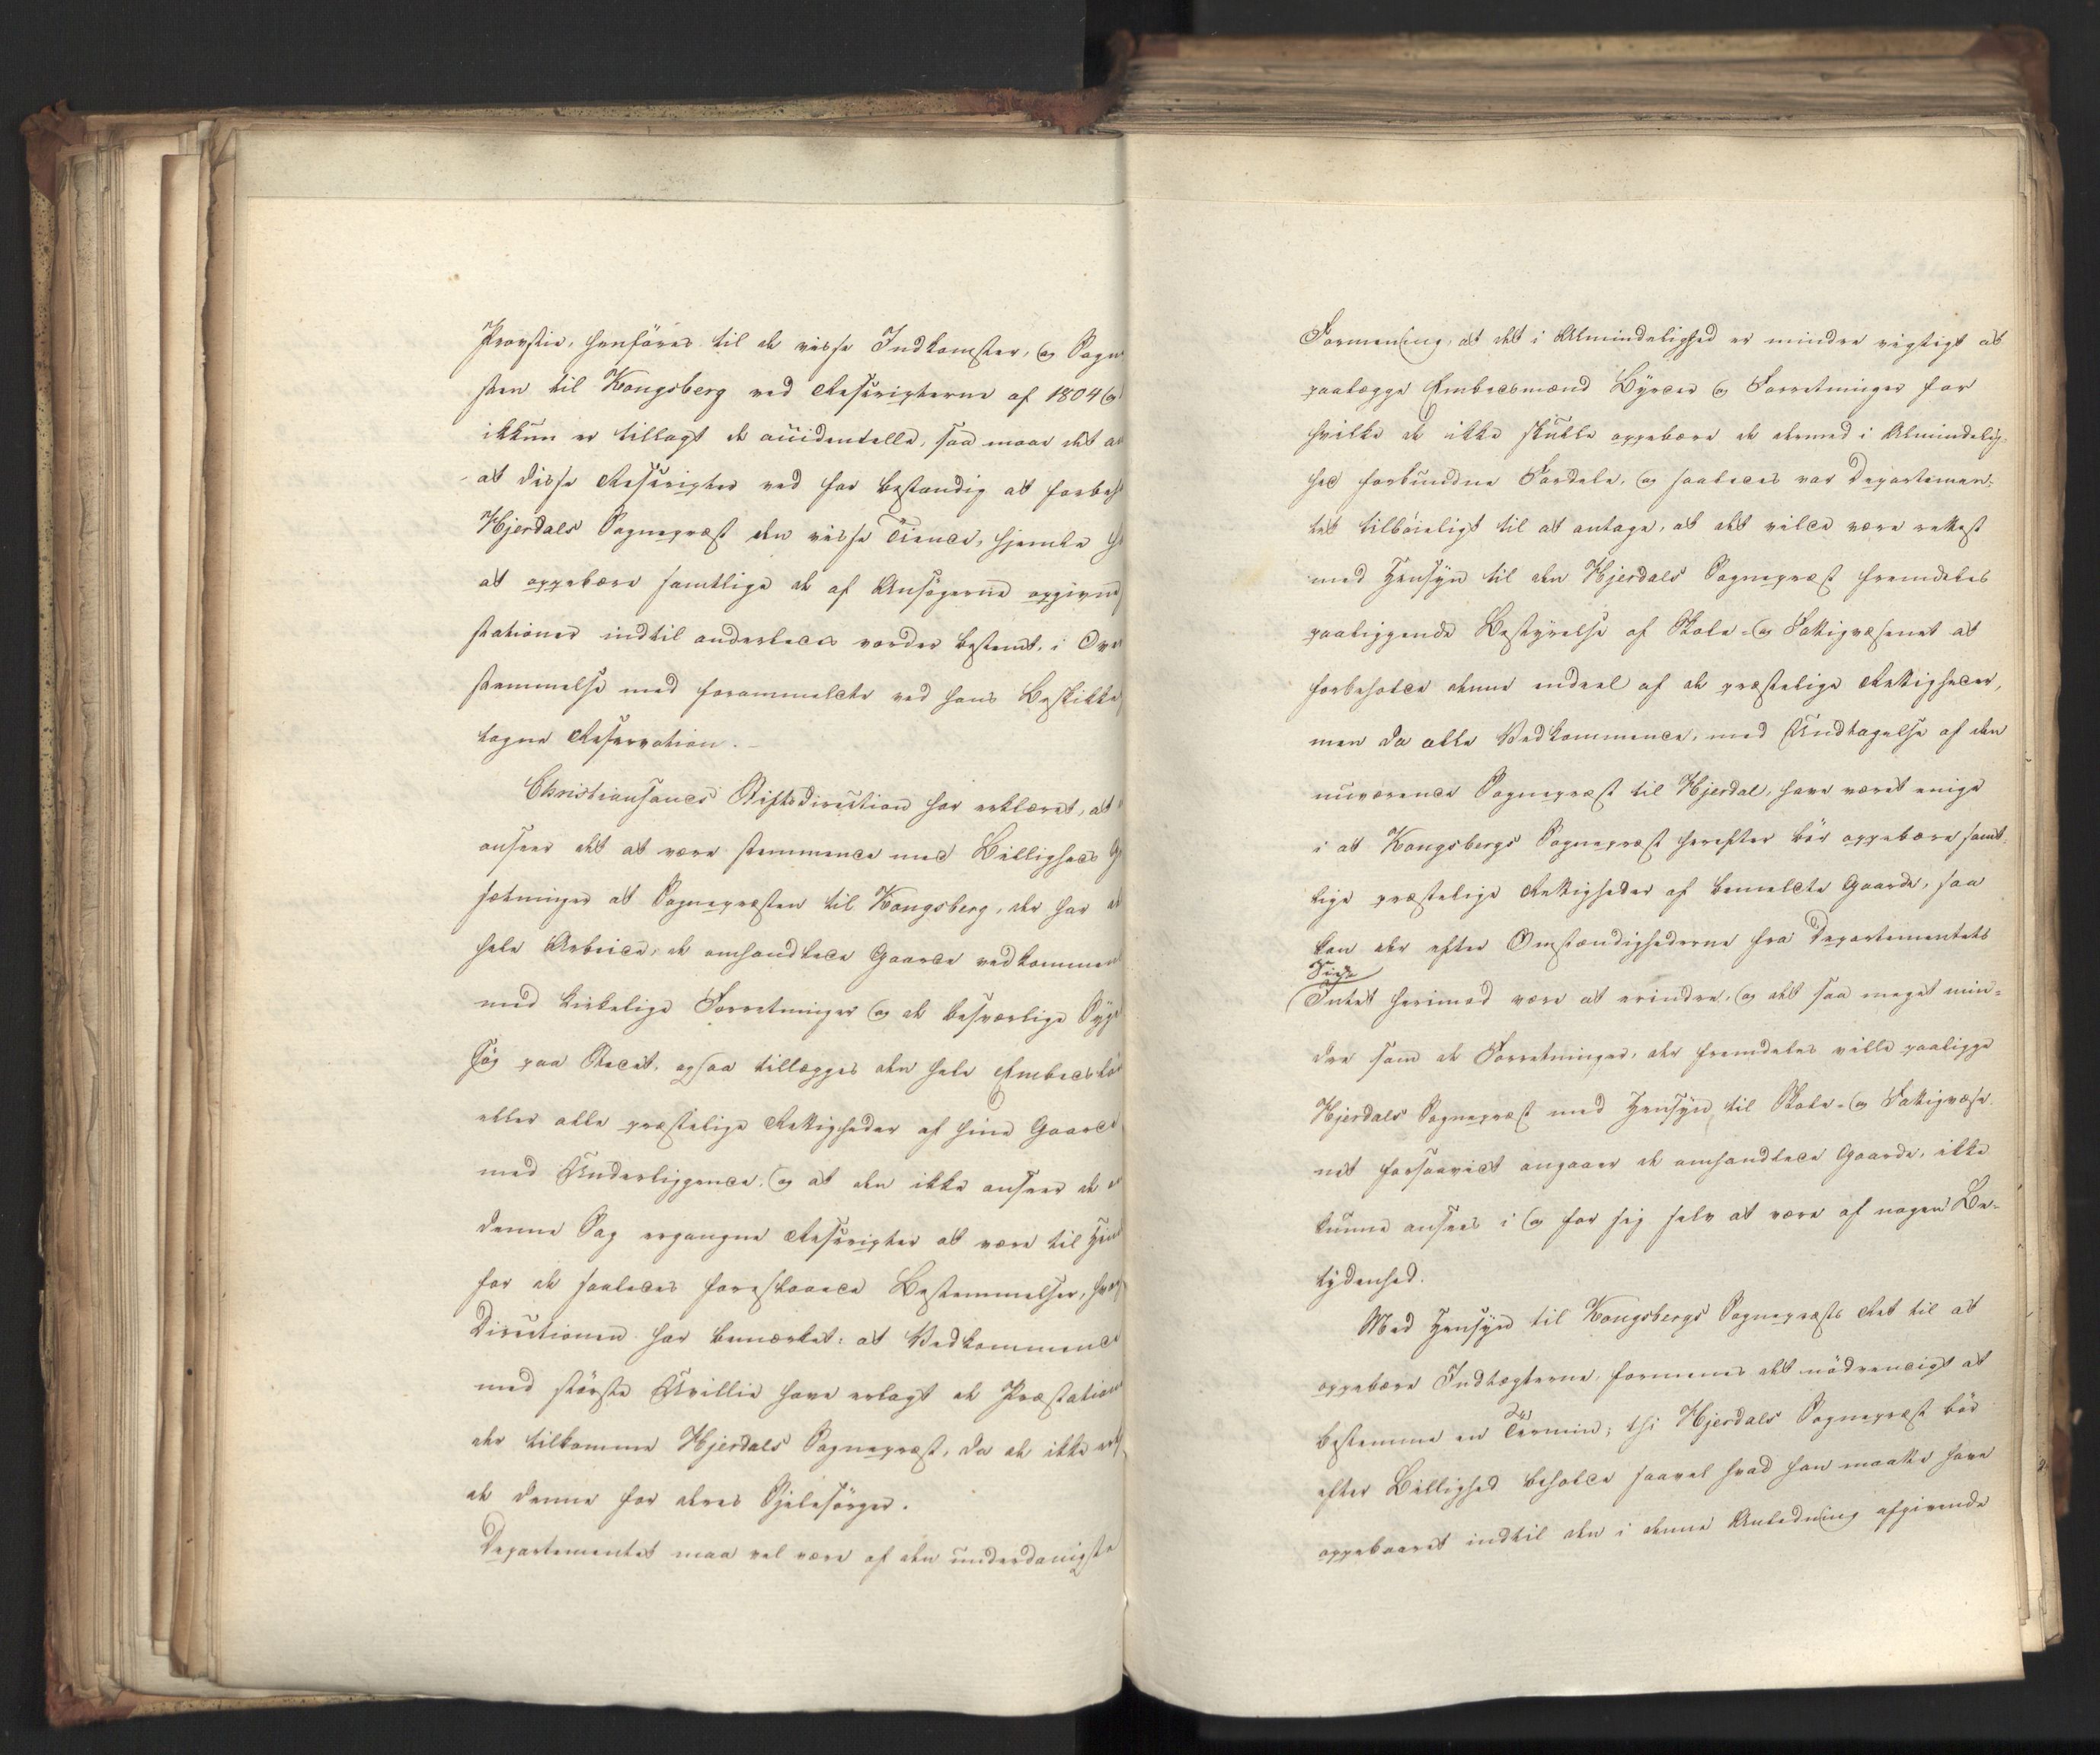 Provstie, henføres til de visse Indkomster, og Sogne
sten til Kongsberg ved Rescripterne af 1804 og
ikkun er tillagt de accidentelle, saa maae det a
at disse Rescripter ved for bestandig at forbeh
Hjerdals Sognepræst den visse Tiende, hjemle h
at oppebære samtlige de af Ansøgerne opgivne
stationer indtil anderledes vorder bestemt, i Over
stemmelse med forommeldte ved hans Beskikke
tagne Reservation.
Christiansands Stiftsdirection har erklæret, at
anseer det at være stemmende med Billigheds G
sætninger at Sognepræsten til Kongsberg, der har
hele Arbeide, de omhandlede Gaarde vedkommen
med kirkelige Forretninger og de besværlige Syge
søg paa Stedet, ogsaa tillægges den hele Embedsløn
eller alle præstelige Rettigheder af hine Gaarde
med Underliggende, og at den ikke anseer de
denne Sag ergangne Rescripter at være til Hin
for de saaledes foreslaaede Bestemmelser, hvor
Directionen har bemærket: at Vedkommende
med største Uvillie have erlagt de Præstation
der tilkomme Hjerdals Sognepræst, da de ikke
de denne for deres Sjelesörger.
Departementet maa vel være af den underdanigste
Formening, at det i Almindelighed er mindre rigtigt at
paalægge Embedsmænd Byrder og Forretninger for
hvilke de ikke skulle oppebære de dermed i Almindelig-
hed forbundne Fordele, og saaledes var Departemen-
tet tilbøieligt til at antage, at det vilde være rettest
med Hensyn til den Hjerdals Sognepræst fremdeles
paaliggende Bestyrelse af Skole- og Fattigvæsenet at
forbeholde denne endeel af de præstelige Rettigheder,
men da alle Vedkommende, med Undtagelse af den
nuværende Sognepræst til Hjerdal, have været enige
i at Kongsbergs Sognepræst herefter bör oppebære samt-
lige præstelige Rettigheder af bemeldte Gaarde, saa
kan der efter Omstændighederne fra Departementets
Side
Intet herimod være at erindre, og det saa meget min-
dre som de Forretninger, der fremdeles ville paaligge
Hjerdals Sognepræst med Hensyn til Skole- og Fattigvæse-
net forsaavidt angaaer de omhandlede Gaarde, ikke
kunne ansees i og for sig selv at være af nogen Be-
tydenhed.
Med Hensyn til Kongsbergs Sognepræsts Ret til at
oppebære Indtægterne, formenes det nødvendigt at
bestemme en Termin; thi Hjerdals Sognepræst bör
efter Billighed beholde saavel hvad han maatte have
oppebaaret indtil den i denne Anledning afgivende